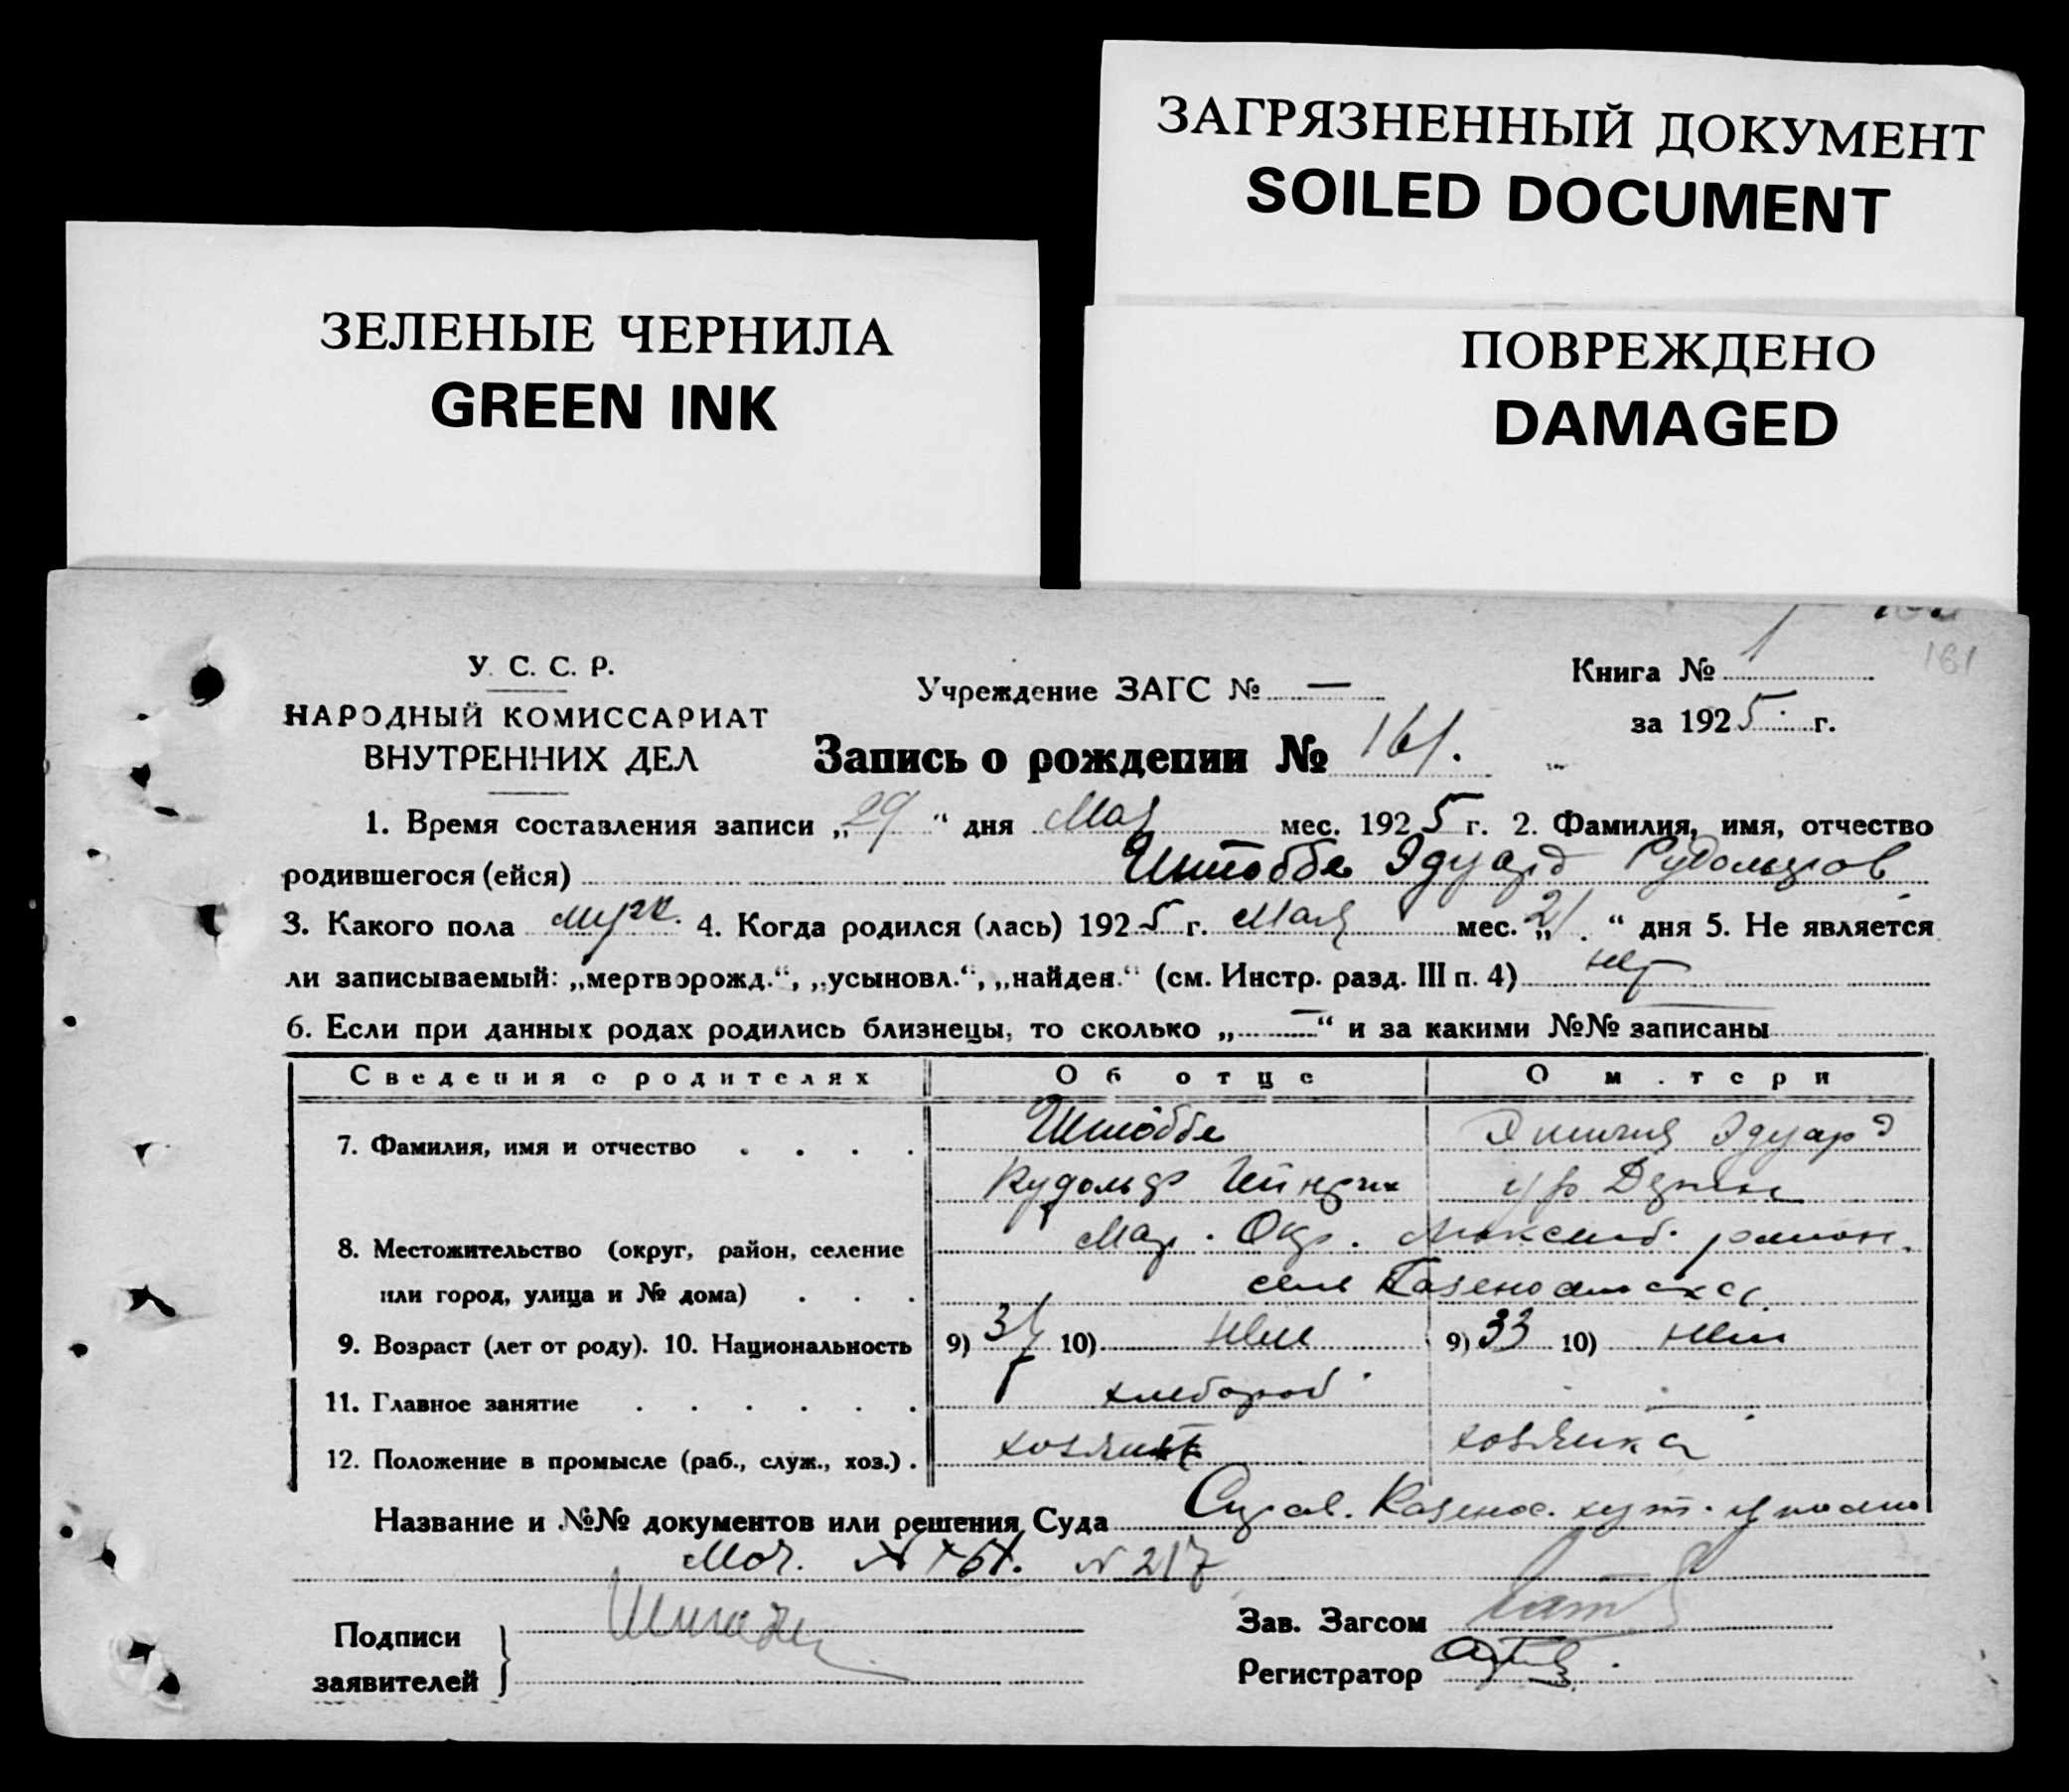 ЗАГРЯЗНЕННЫЙ ДОКУМЕНТ
SOILED DOCUMENT
ЗЕЛЕНЫЕ ЧЕРНИЛА
GREEN INK
ПОВРЕЖДЕНО
DAMAGED
161
У. С. С. Р.
НАРОДНЫЙ КОМИССАРИАТ
ВНУТРЕННИХ ДЕЛ
Учреждение ЗАГС № —
Книга № 1
за 1925 г.
Запись о рождении № 161.
1. Время составления записи „29“ дня Мая мес. 1925 г. 2. Фамилия, имя, отчество
родившегося (ейся) Штоббе Эдуард Рудольфов
3. Какого пола муж. 4. Когда родился (лась) 1925 г. Мая мес. „21.“ дня 5. Не является
ли записываемый: „мертворожд.“, „усыновл.“, „найден.“ (см. Инстр. разд. III п. 4) нет
6. Если при данных родах родились близнецы, то сколько „—“ и за какими №№ записаны
Сведения о родителях Об отце О матери
7. Фамилия, имя и отчество . . . . Штоббе Эдуард
Рудольф Гейнрих у/р
8. Местожительство (округ, район, селение Мар. Окр. район.
или город, улица и № дома) . . . село
9. Возраст (лет от роду). 10. Национальность 9) 31 10) нем 9) 33 10) нем
11. Главное занятие . . . . . . хлебороб
12. Положение в промысле (раб., служ., хоз.) . хозяин хозяйка
Название и №№ документов или решения Суда
N 161. N 217
Подписи
заявителей
Штоббе
Зав. Загсом
Регистратор